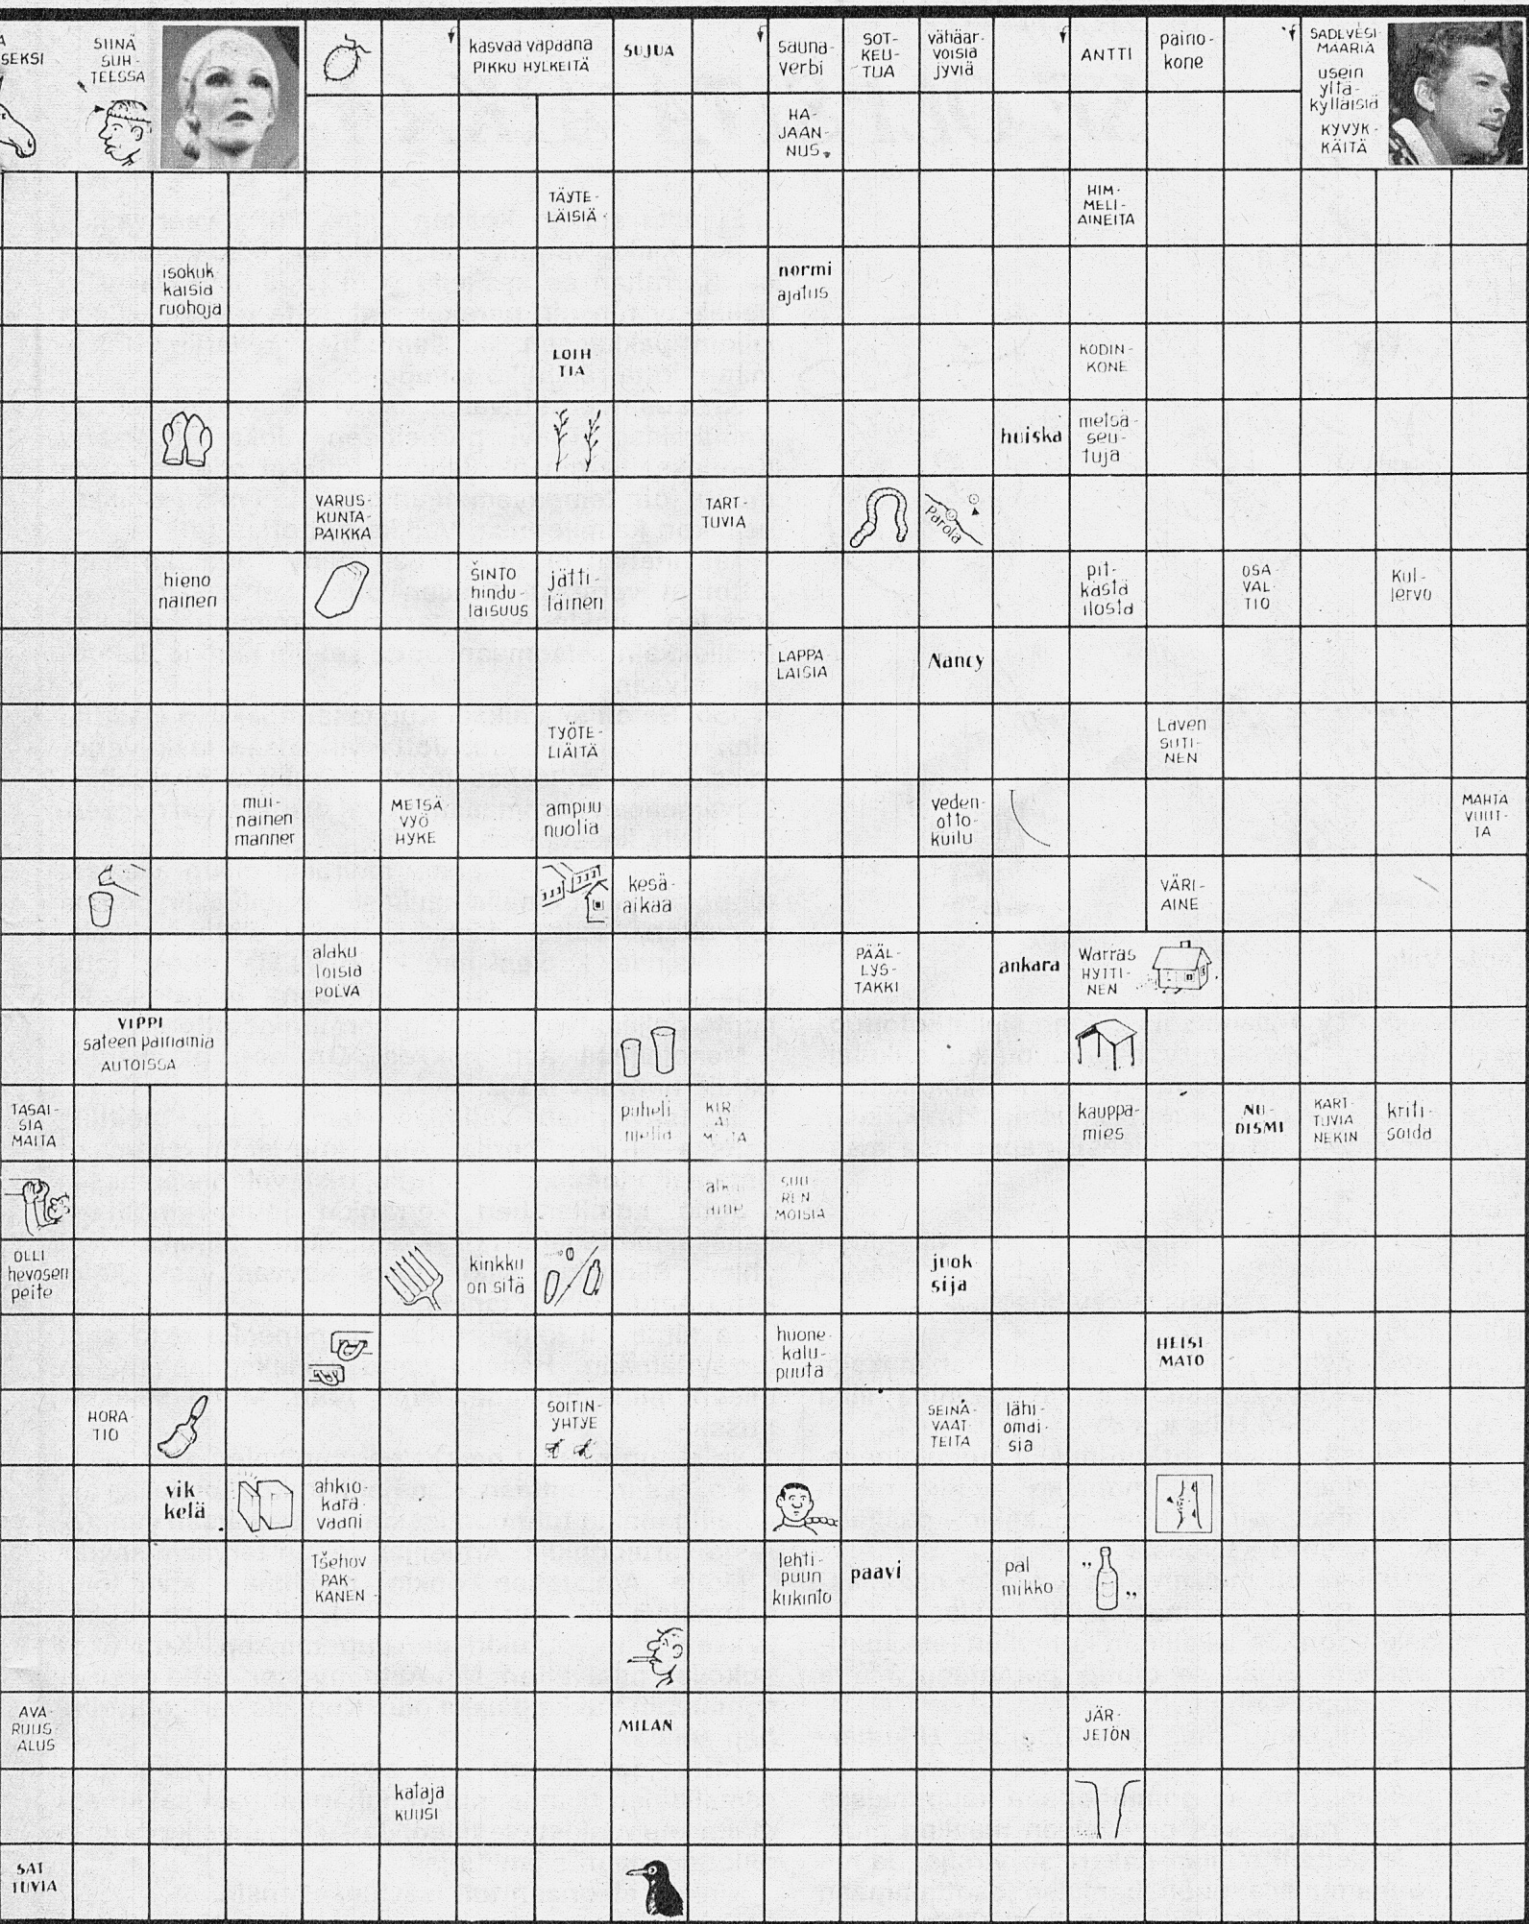 SEKSI
SIINÄ
SUH-
TEESSA
kasvaa vapaana
PIKKU HYLKEITÄ
SUJUA
sauna-
verbi
SOT-
KEU-
TUA
vähäar-
voisia
jyviä
ANTTI
paino-
kone
SADEVESI-
MÄÄRIÄ
usein
yltä-
kylläisiä
KYVYK-
KÄITÄ
HA-
JAAN-
NUS
TÄYTE-
LÄISIÄ
HIM-
MELI-
AINEITA
isokuk
kaisia
ruohoja
normi
ajatus
LOIH
TIA
KODIN-
KONE
huiska
metsä-
seu-
tuja
VARUS-
KUNTA-
PAIKKA
TART-
TUVIA
Parola
hieno
nainen
ŠINTO
hindu
laisuus
jätti-
läinen
pit-
kästä
ilosta
OSA
VAL
TIO
Kul-
lervo
LAPPA
LAISIA
Nancy
TYÖTE-
LIÄITÄ
Laven
SUTI-
NEN
mui-
nainen
manner
METSÄ
VYÖ
HYKE
ampuu
nuolia
veden-
otto-
kuilu
MAHTA
VUUT-
TA
kesä-
aikaa
VÄRI-
AINE
alaku-
loisia
POLVA
PÄÄL-
LYS-
TAKKI
ankara
Warras
HYTTI-
NEN
VIPPI
sateen painamia
AUTOISSA
TASAI-
SIA
MAITA
puheli
mella
kauppa-
mies
NU-
DISMI
KART-
TUVIA
NEKIN
kriti-
soida
SUU
REN
MOISIA
OLLI
hevosen
peite
kinkku
on sitä
juok
sija
huone
kalu-
puuta
HEISI-
MATO
HORA-
TIO
SOITIN-
YHTYE
SEINÄ-
VAAT
TEITA
lähi-
omai-
sia
vik
kelä
ahkio
kara-
vaani
Tšehov
PAK
KANEN
lehti-
puun
kukinto
paavi
pal
mikko
" "
AVA
RUUS-
ALUS
MILAN
JÄR-
JETÖN
kataja
KUUSI
SAT
TUVIA